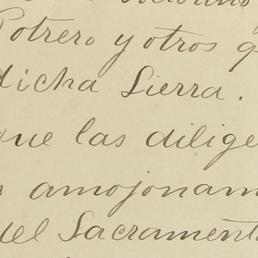 Potrero y otros q
dicha Sierra.
que las dilige
amojonam
del Sacrament